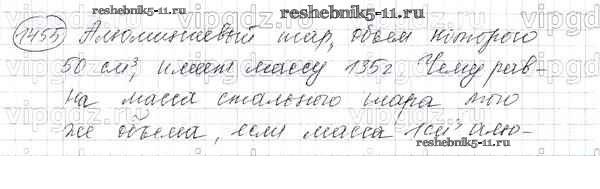 reshebnik5-11.ru
1455 Алюминиевый шар, объем которого
50 см³, имеет массу 135г. Чему рав-
на масса стального шара того
же объема, если масса 1см³ алю-
reshebnik5-11.ru